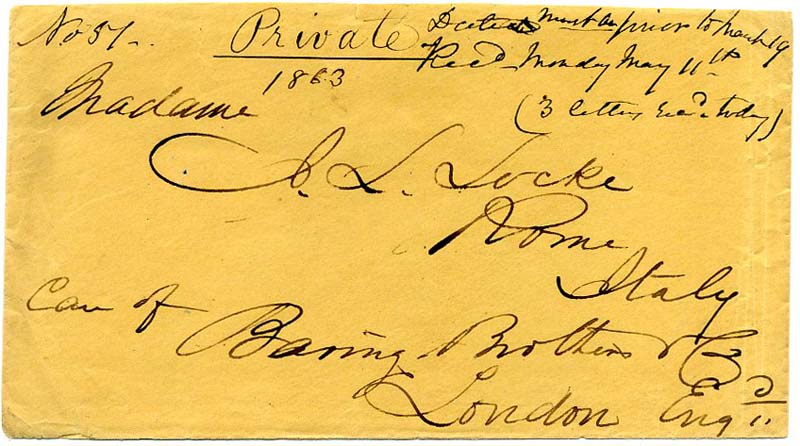 No 51.
Private
1863
Dated must be prior to March 19
Recd. Monday May 11th
(3 letters recd today)
Madame
A. L. Locke
Rome
Italy
Care of
Baring Brothers & Co
London Engd